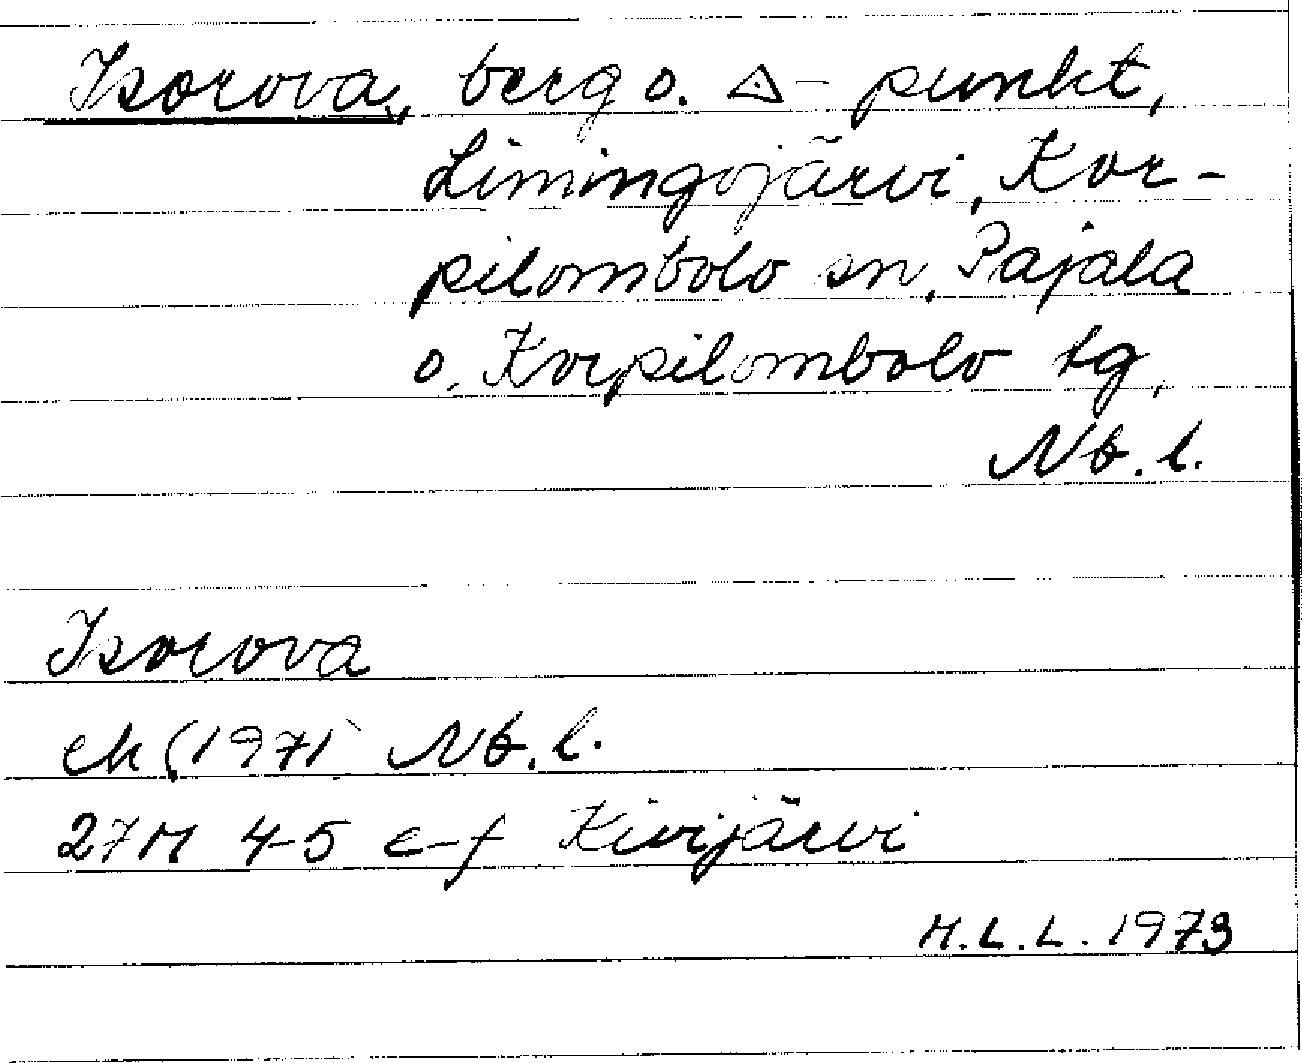 Isorova, berg o. △-punkt,
Limingojärvi, Kor-
pilombolo sn, Pajala
o. Korpilombolo tg,
Nb. l.
Isorova
ek (1971) Nb. l.
27M 4-5 e-f Kivijärvi
H.L.L. 1973